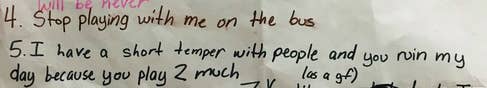 will be never
4. Stop playing with me on the bus
5. I have a short temper with people and you ruin my
day because you play 2 much (as a gf)